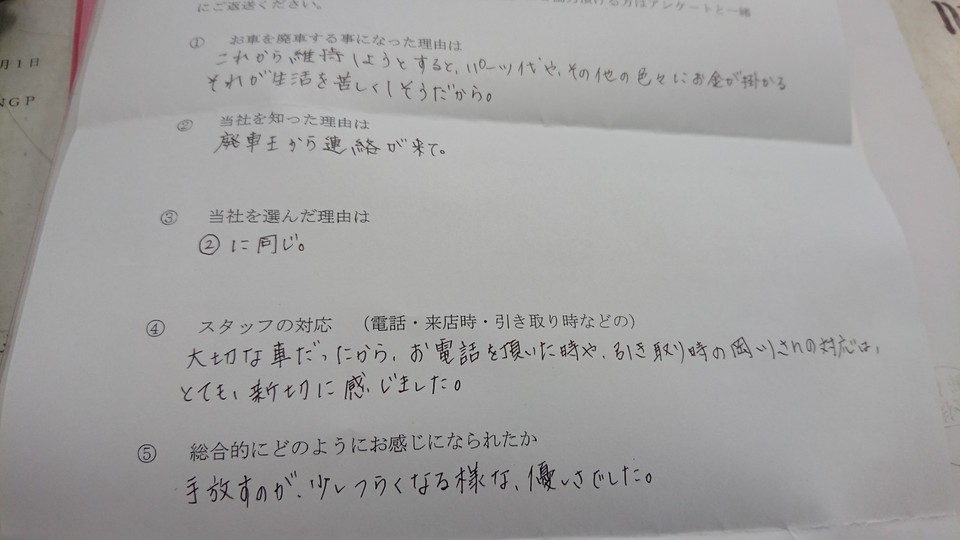 にご返送ください。
頂ける方はアンケートと一緒
月1日
NGP
① お車を廃車する事になった理由は
これから維持しようとすると、パーツ代や、その他の色々にお金が掛かる
それが生活を苦しくしそうだから。
② 当社を知った理由は
廃車王から連絡が来て。
③ 当社を選んだ理由は
②に同じ。
④ スタッフの対応 (電話・来店時・引き取り時などの)
大切な車だったから、お電話を頂いた時や、引き取り時の岡川さんの対応は、
とても、親切に感じました。
⑤ 総合的にどのようにお感じになられたか
手放すのが、少しつらくなる様な、優しさでした。